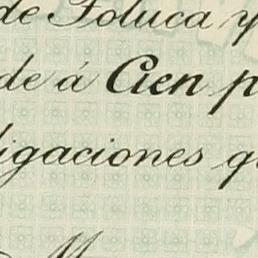 de Toluca y
de á Cien p
igaciones q